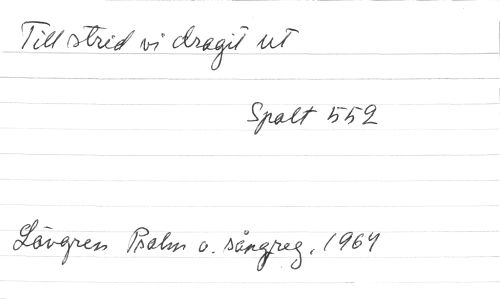 Till strid vi dragit ut
Spalt 552
Lövgren Psalm o. sångreg. 1964